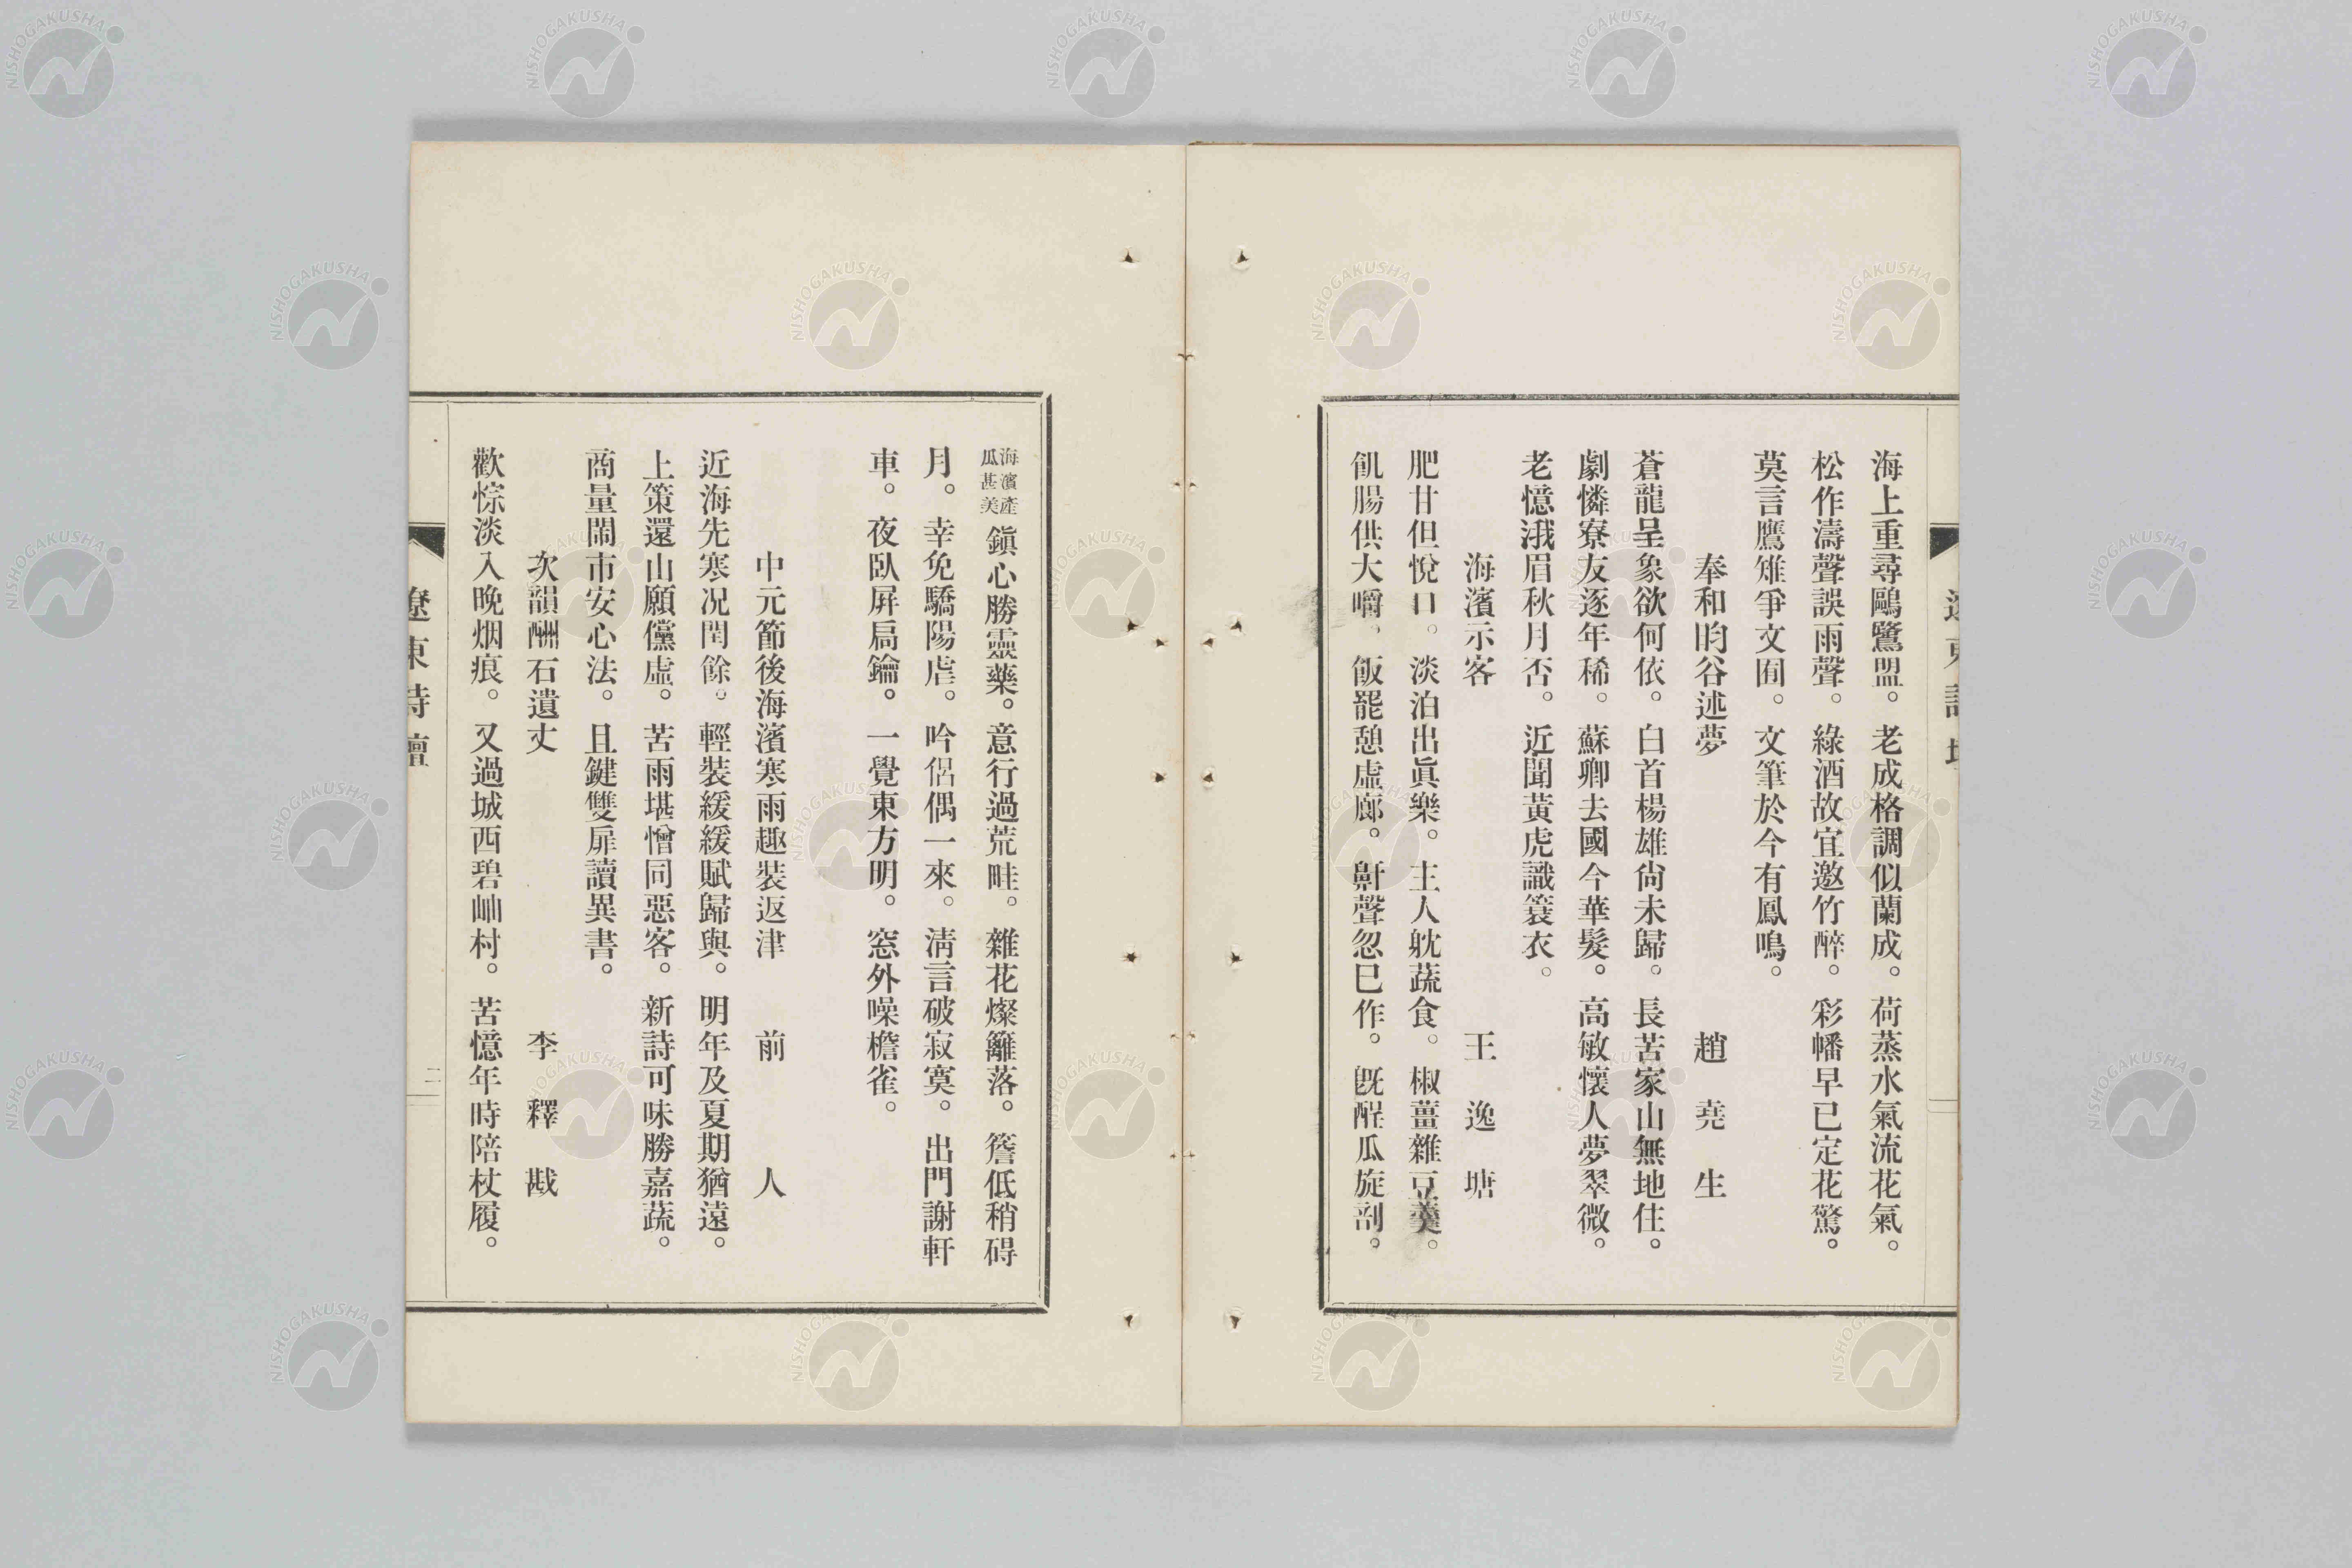 海上重尋鷗鷺盟。老成格調似蘭成。荷蒸水氣流花氣。
松作濤聲誤雨聲。綠酒故宜邀竹醉。彩幡早已定花驚。
莫言鷹雉爭文囿。文筆於今有鳳鳴。
奉和昀谷述夢　趙堯生
蒼龍呈象欲何依。白首楊雄尙未歸。長苦家山無地住。
劇憐寮友逐年稀。蘇卿去國今華髮。高敏懷人夢翠微。
老憶涐眉秋月否。近聞黃虎識簑衣。
海濱示客　王逸塘
肥甘但悅口。淡泊出眞樂。主人躭蔬食。椒薑雜豆羹。
飢腸供大嚼。飯罷憩虛廊。鼾聲忽已作。旣醒瓜旋剖。
海濱產瓜甚美鎭心勝靈藥。意行過荒畦。雜花燦籬落。簷低稍碍
月。幸免驕陽虐。吟侶偶一來。淸言破寂寞。出門謝軒
車。夜臥屛扃鑰。一覺東方明。窓外噪檐雀。
中元節後海濱寒雨趣裝返津　前人
近海先寒况閏餘。輕裝緩緩賦歸與。明年及夏期猶遠。
上策還山願儻虛。苦雨堪憎同惡客。新詩可味勝嘉蔬。
商量閙市安心法。且鍵雙扉讀異書。
次韻酬石遺丈　李釋戡
歡悰淡入晚烟痕。又過城西碧岫村。苦憶年時陪杖履。
遼東詩壇
二
NISHOGAKUSHA